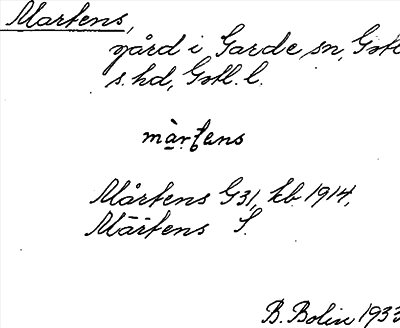 Martens,
gård i Garde sn, Gotl.
s. hd, Gotl. l.
màrtens
Mårtens G31, kb 1914,
Mårtens S.
B. Bolin 1933